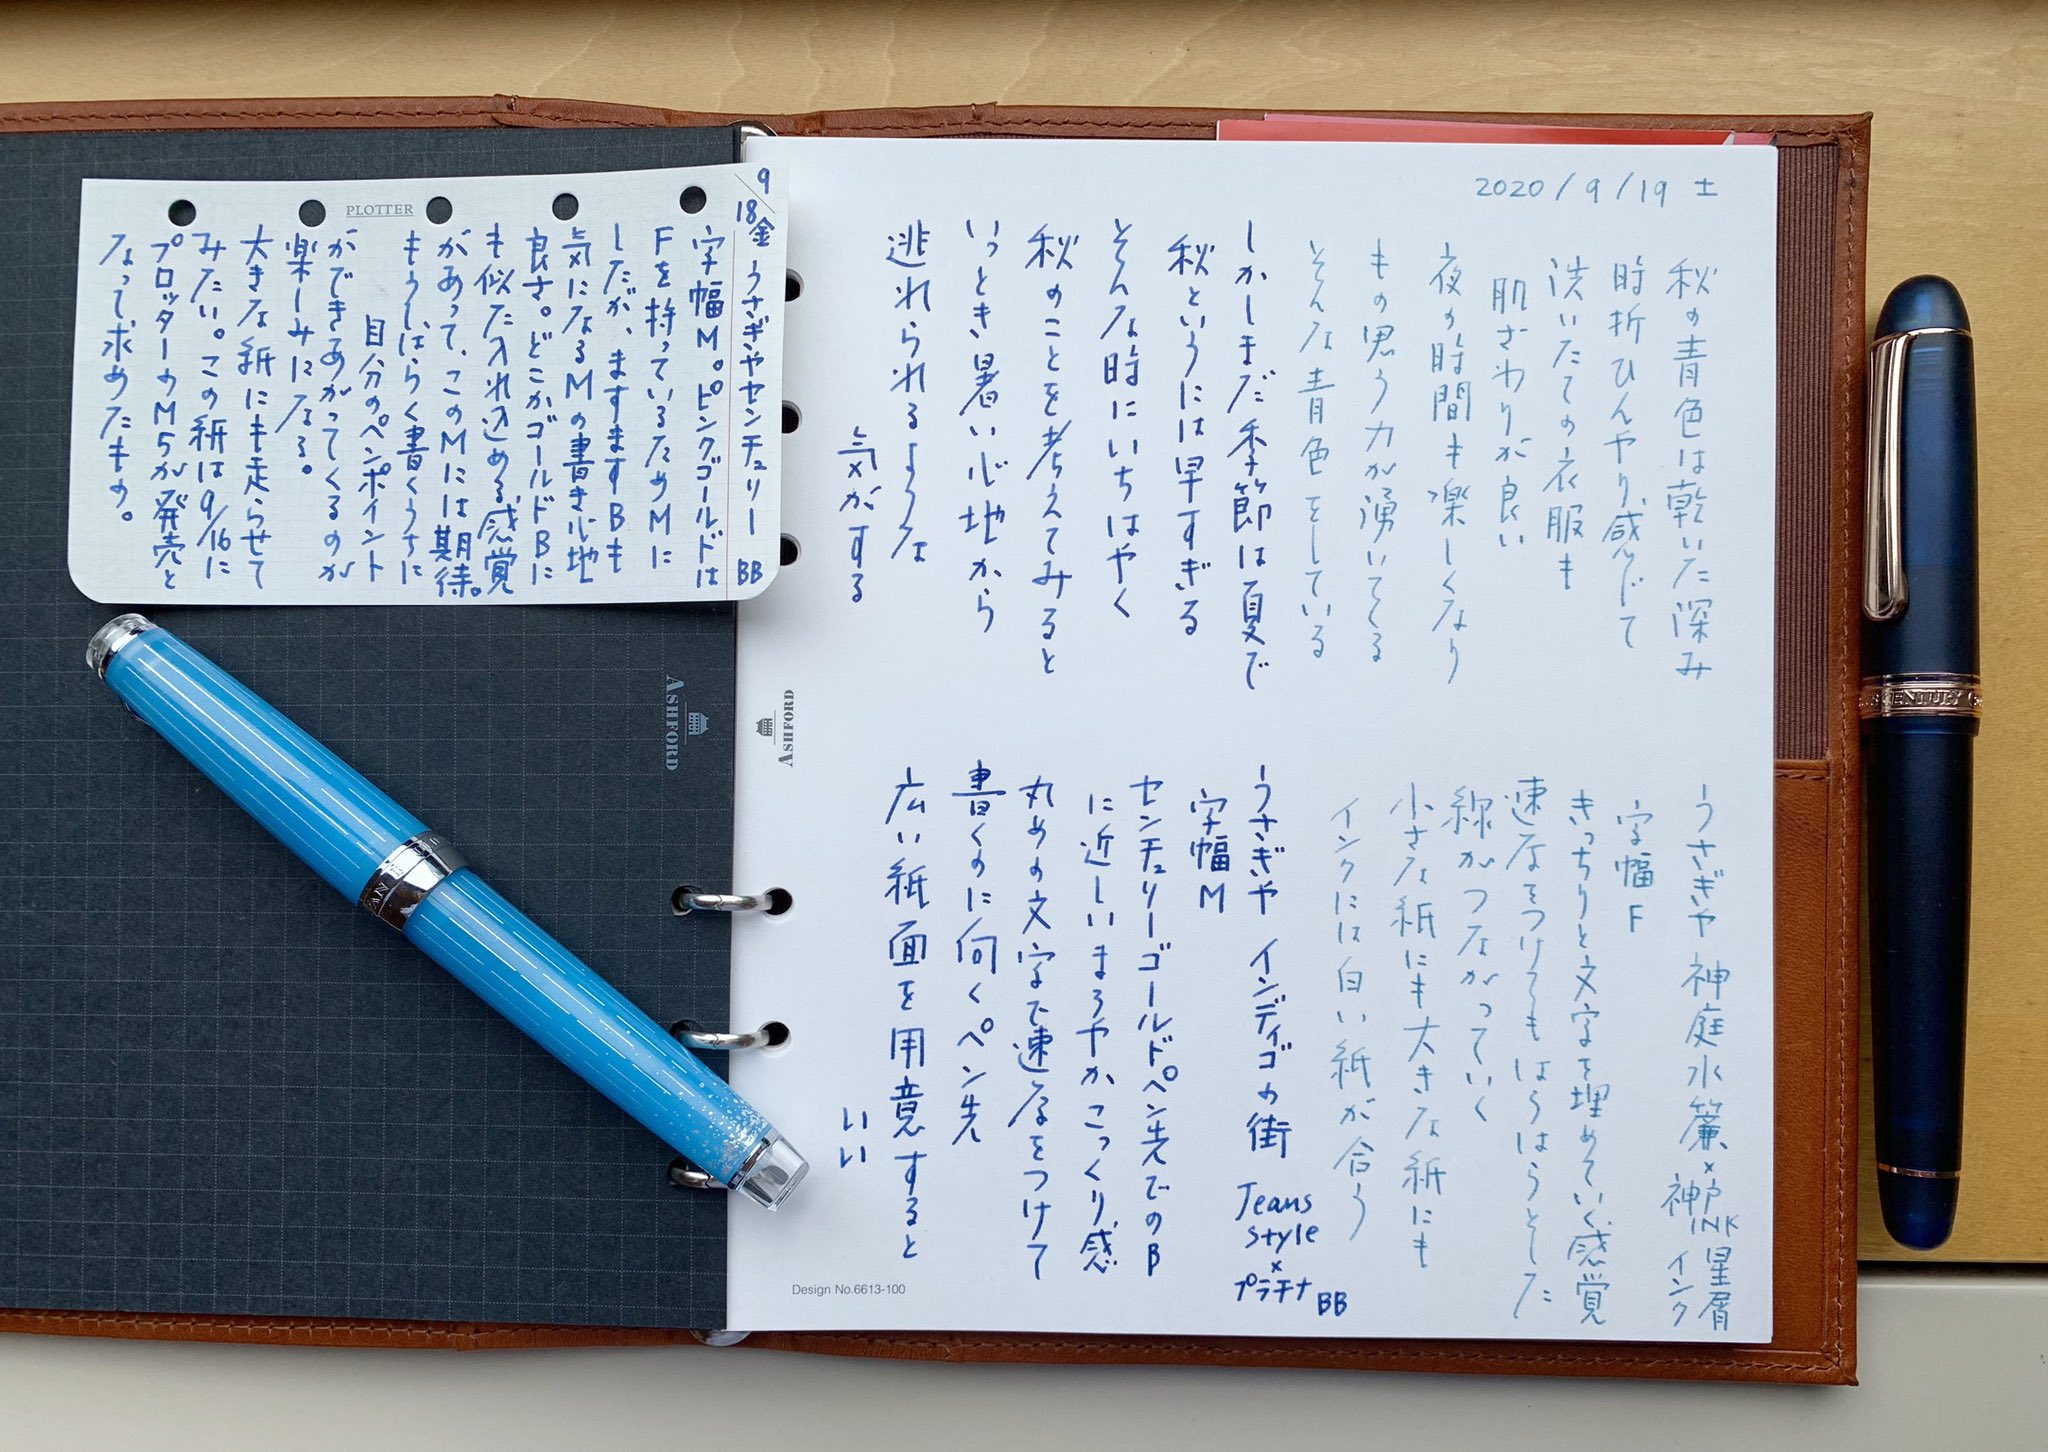 2020/9/19 土
秋の青色は乾いた深み
時折ひんやり感じて
洗いたての衣服も
肌ざわりが良い
夜の時間も楽しくなり
もの思う力が湧いてくる
そんな青色をしている
しかしまだ季節は夏で
秋というには早すぎる
そんな時にいちはやく
秋のことを考えてみると
いっとき暑い心地から
逃れられるような
気がする
うさぎや 神庭水簾×神戸INK 星屑
インク
字幅F
きっちりと文字を埋めていく感覚
速度をつけてもはらはらとした
線がつながっていく
小さな紙にも大きな紙にも
インクには白い紙が合う
うさぎや インディゴの街 Jeans style×プラチナ BB
字幅M
センチュリーゴールドペン先でのB
に近しいまろやかこっくり感
丸めの文字で速度をつけて
書くのに向くペン先
広い紙面を用意すると
いい
Design No.6613-100
ASHFORD
ASHFORD
PLOTTER
9/18金 うさぎやセンチュリー BB
字幅M。ピンクゴールドは
Fを持っているためMに
したが、ますますBも
気になるMの書き心地
良さ。どこかゴールドBに
も似た入れ込める感覚
があって、このMには期待。
もうしばらく書くうちに
自分のペンポイント
ができあがってくるのが
楽しみになる。
大きな紙にも走らせて
みたい。この紙は9/16に
プロッターのM5が発売と
なって、求めたもの。
CENTURY